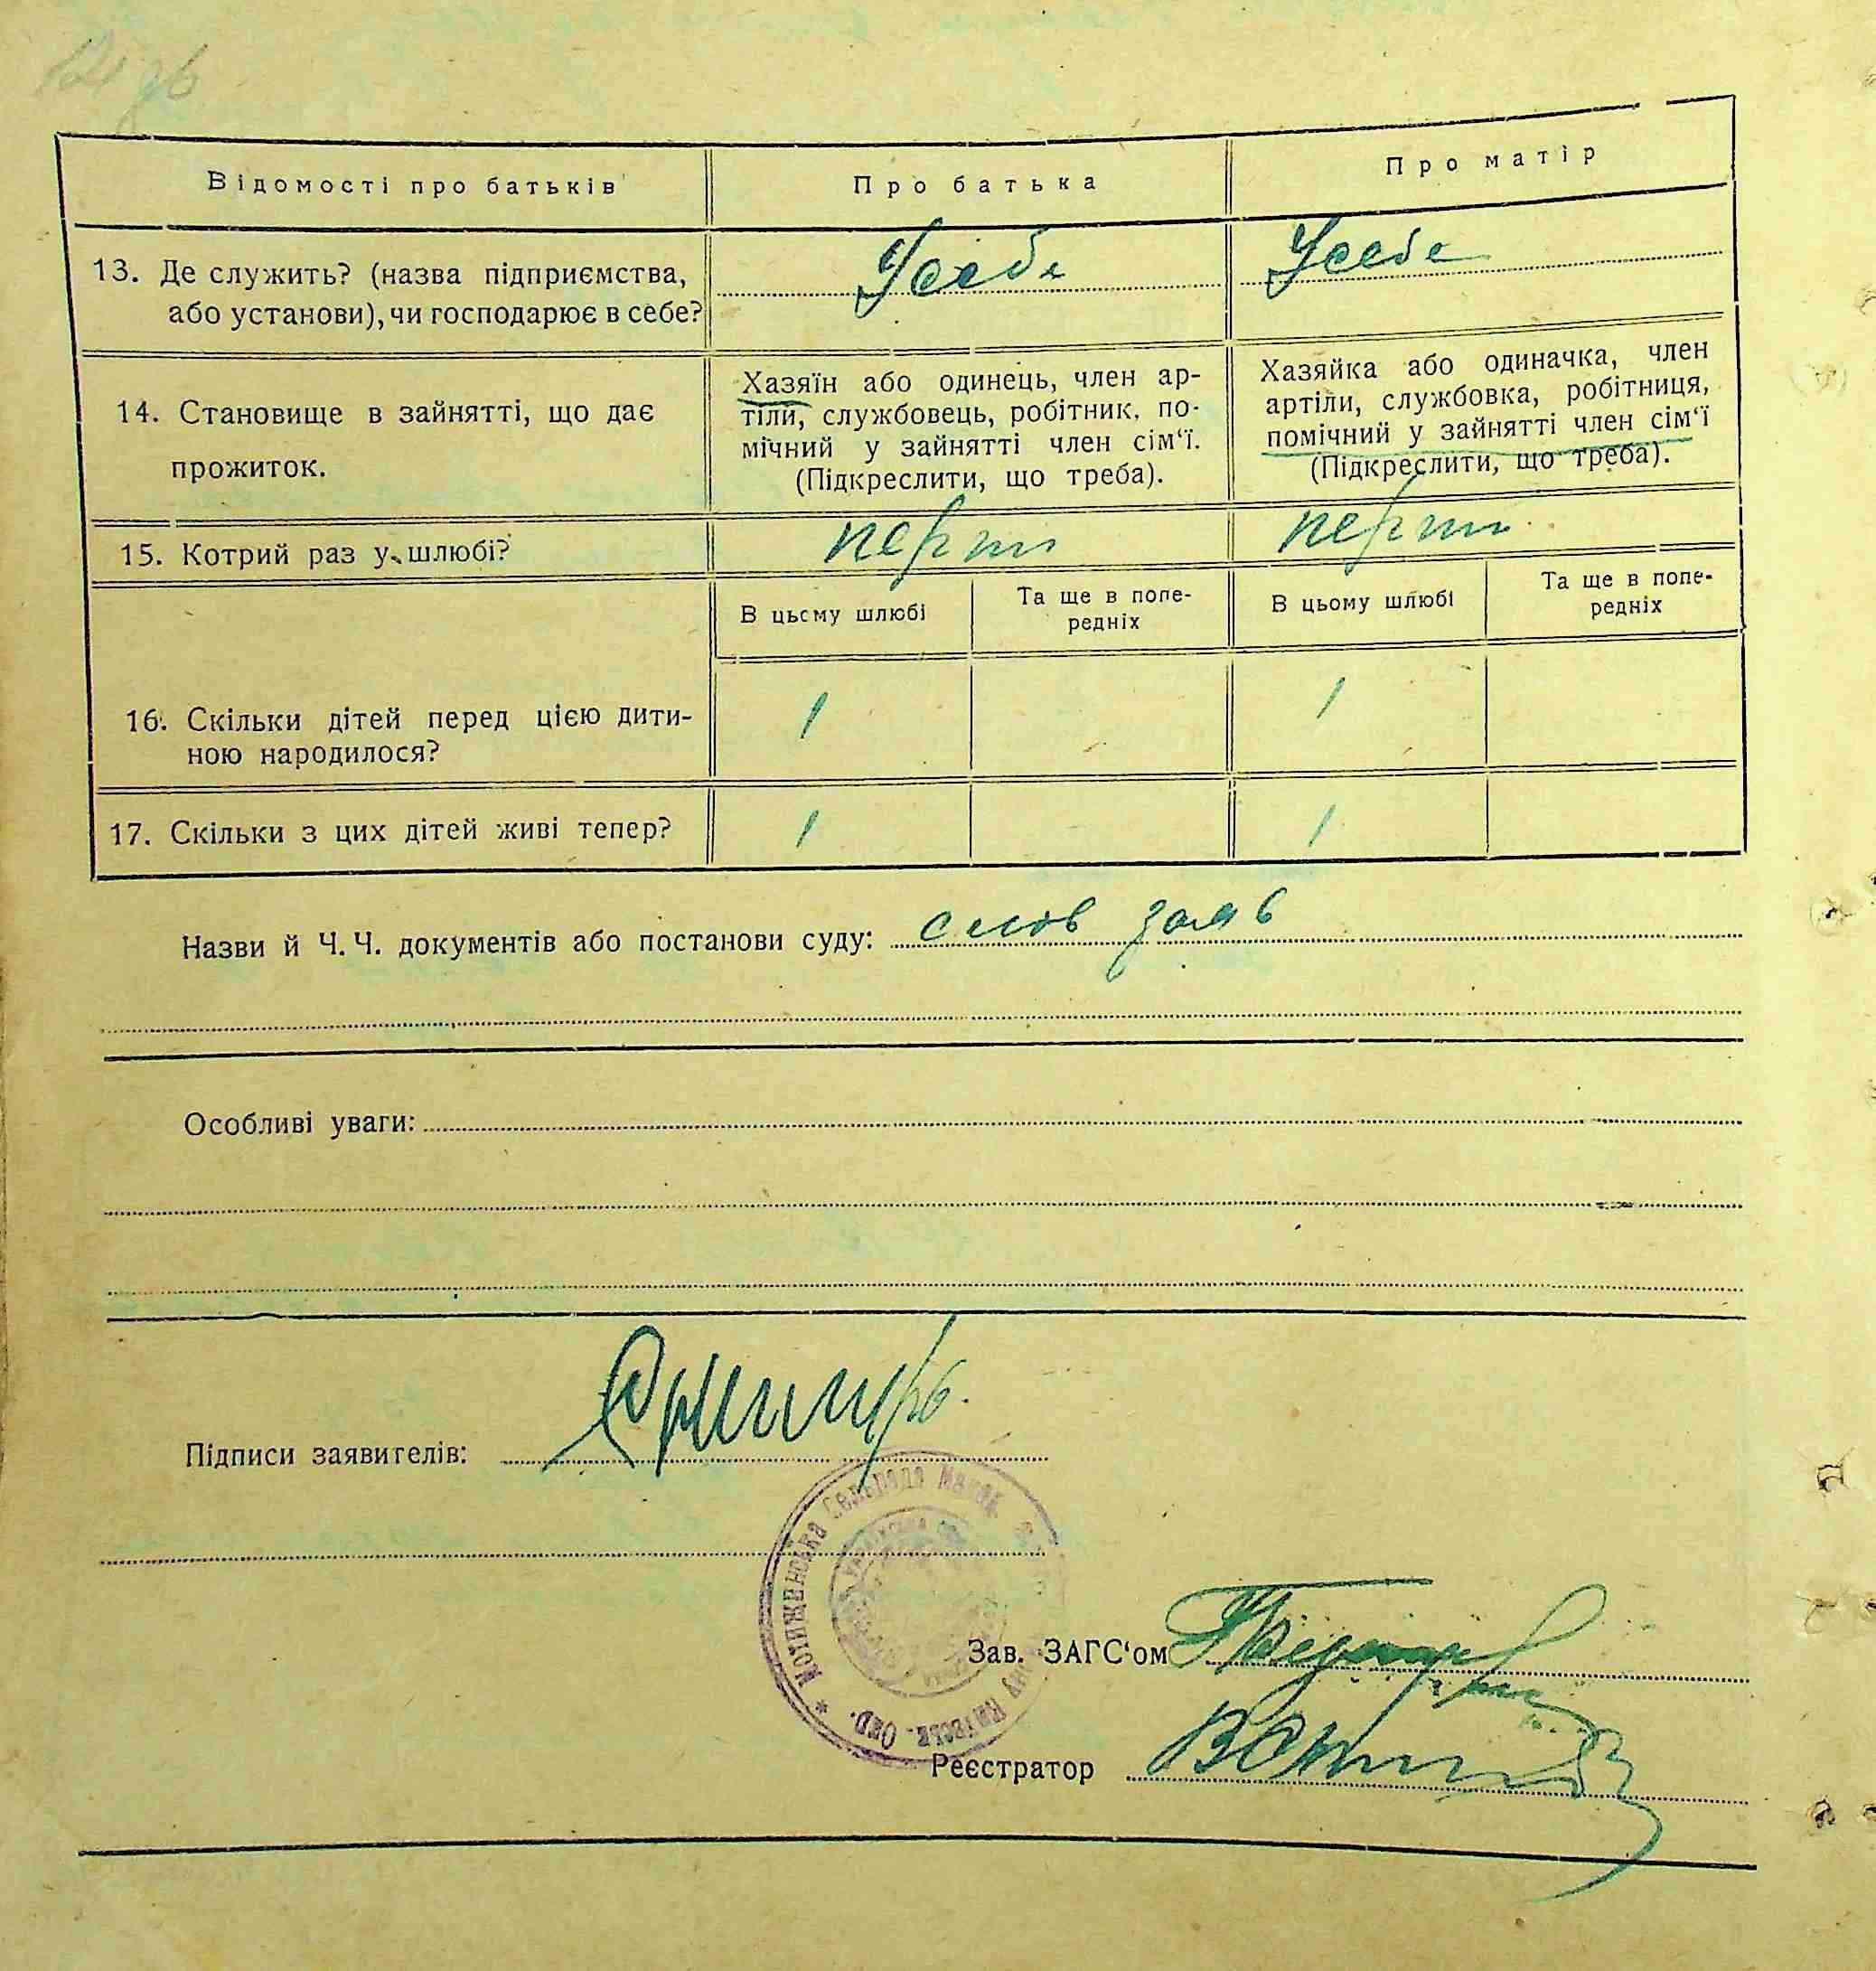 Відомості про батьків
Про батька
Про матір
13. Де служить? (назва підприємства,
або установи), чи господарює в себе?
Усебе
Усебе
14. Становище в зайнятті, що дає
прожиток.
Хазяїн або одинець, член ар-
тіли, службовець, робітник, по-
мічний у зайнятті член сім‘ї.
(Підкреслити, що треба).
Хазяйка або одиначка, член
артіли, службовка, робітниця,
помічний у зайнятті член сім‘ї
(Підкреслити, що треба).
15. Котрий раз у шлюбі?
перш
перш
В цьому шлюбі
Та ще в попе-
редніх
В цьому шлюбі
Та ще в попе-
редніх
16. Скільки дітей перед цією дити-
ною народилося?
1
1
17. Скільки з цих дітей живі тепер?
1
1
Назви й Ч. Ч. документів або постанови суду: слов заяв
Особливі уваги:
Підписи заявителів:
Мотижинська Сельрада Макар.
Київськ. Окр.
Зав. ЗАГС‘ом
Реєстратор